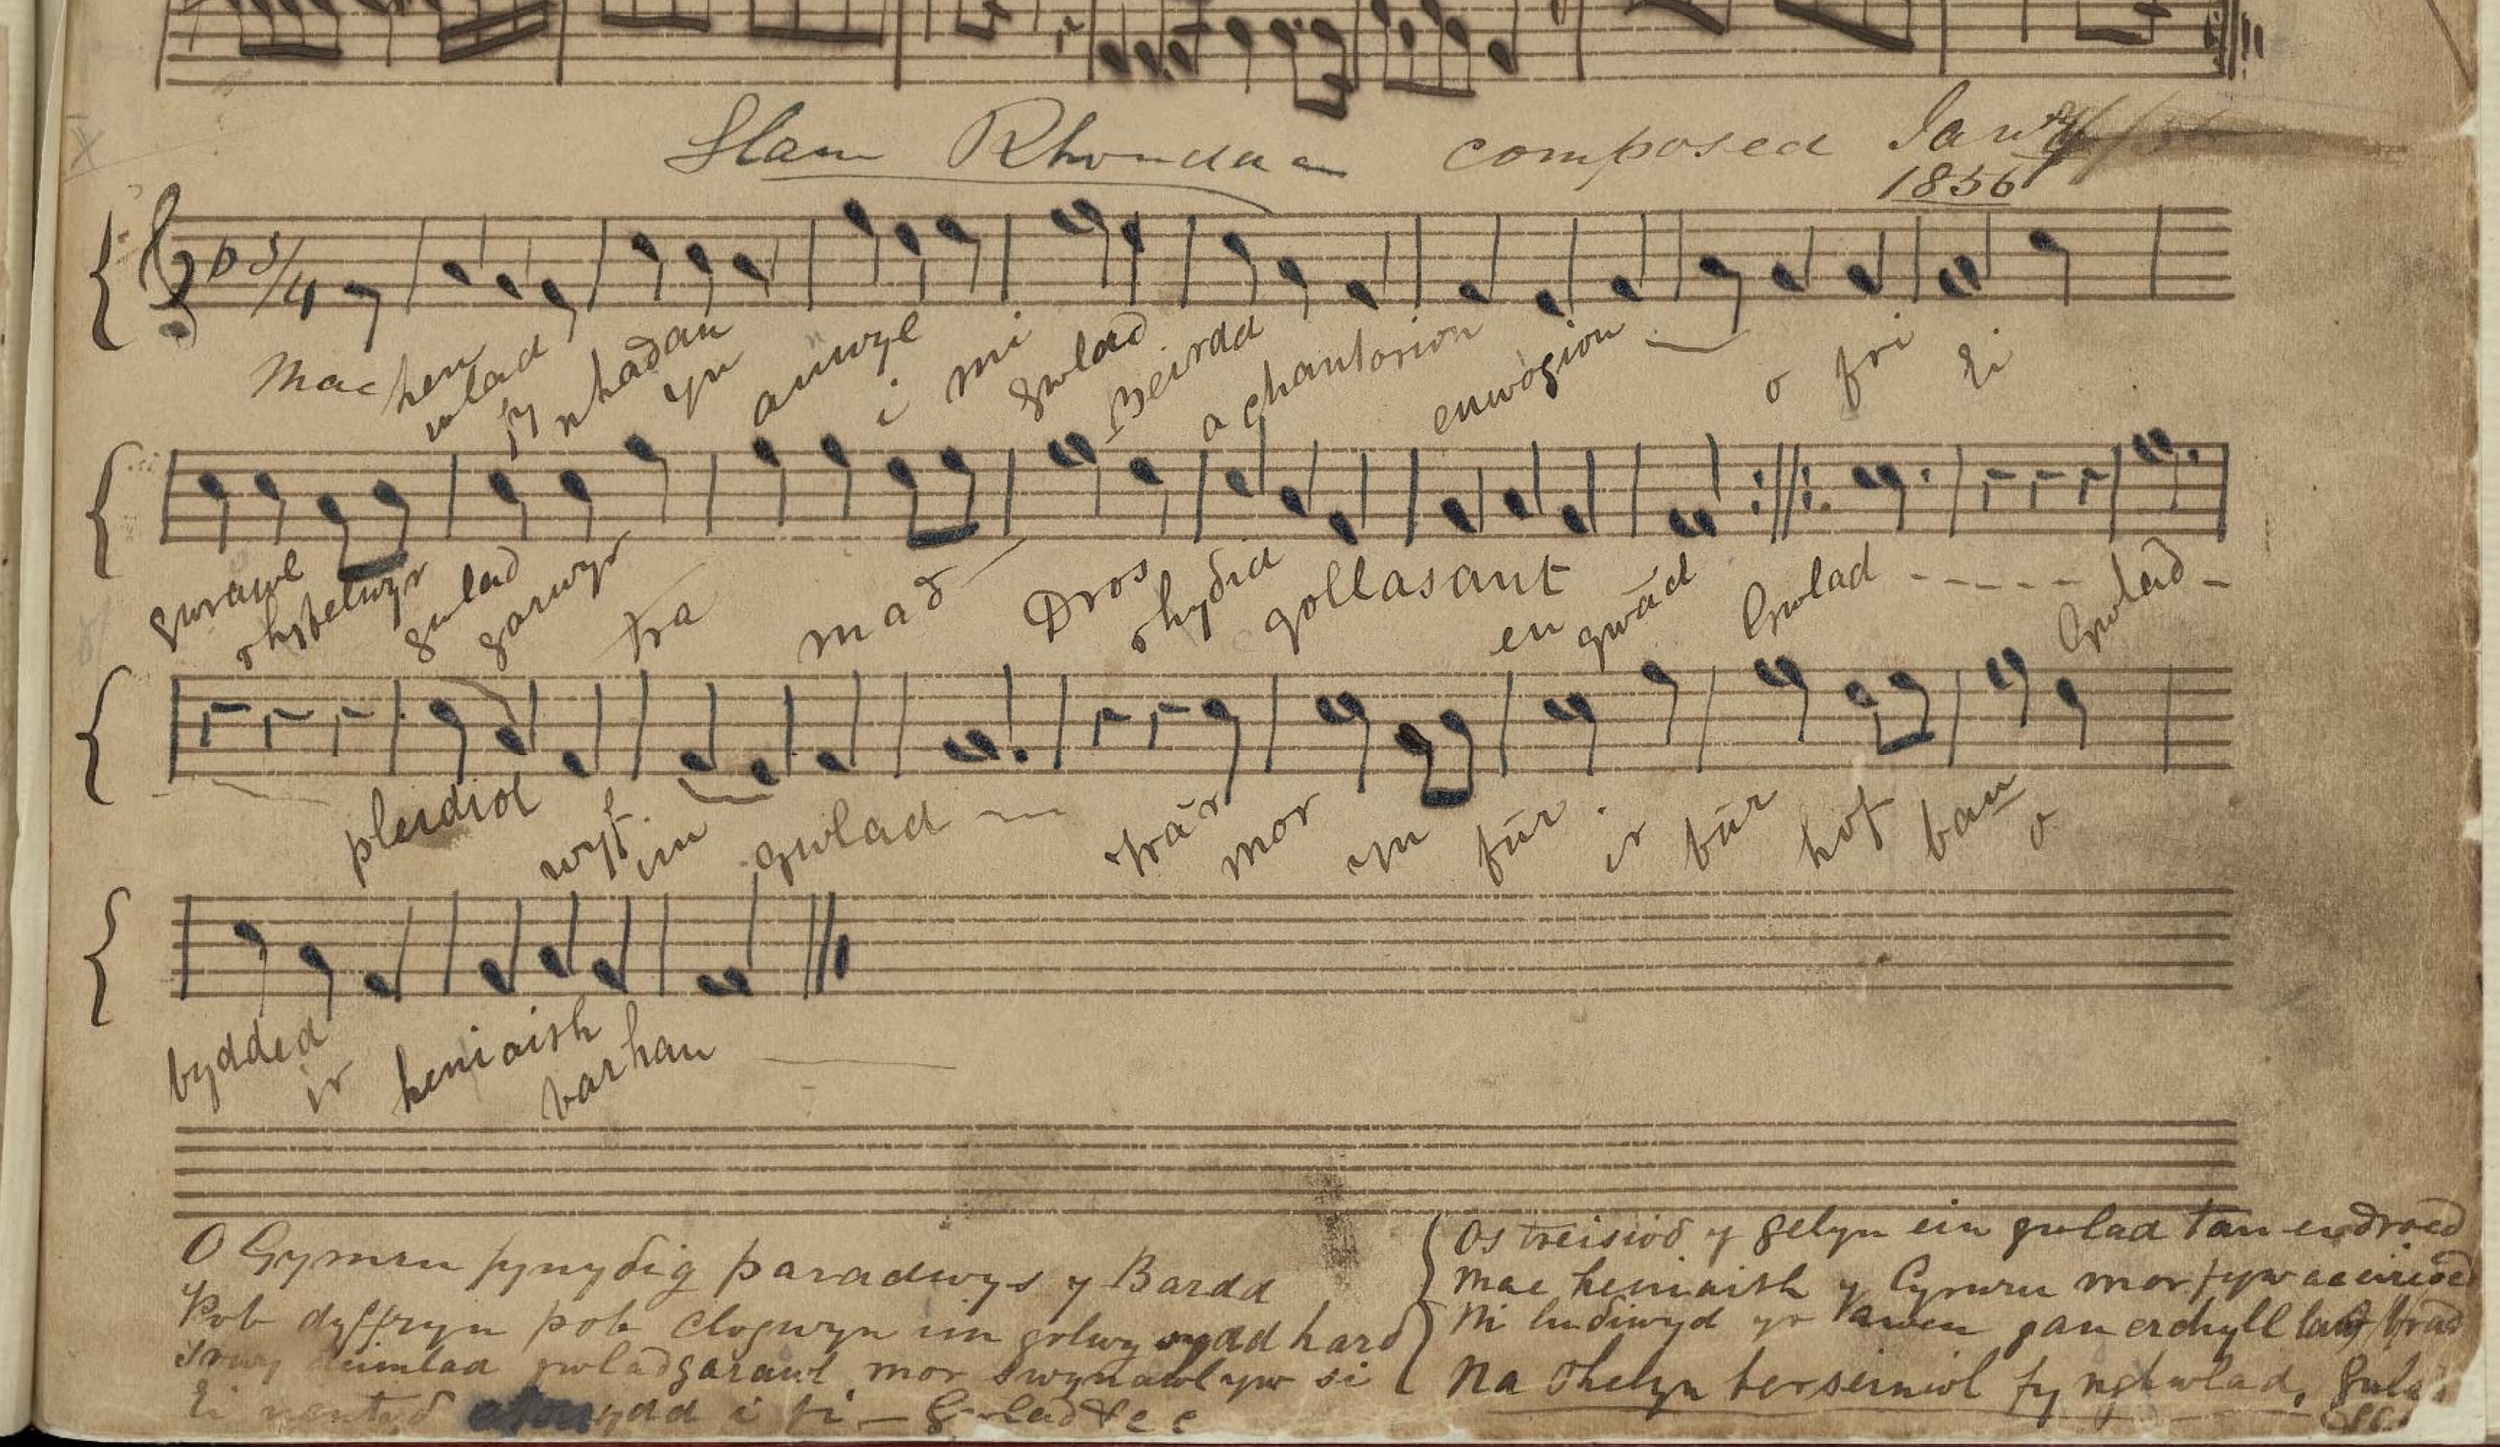 Glan Rhondda composed Janry
1856
3/4
Mae hen wlad fy nhadau yn anwyl i mi gwlad Beirdd a chantorion enwogion o fri Ei
gwrawl ryfelwyr gwlad garwyr tra mad Dros ryðid gollasant eu gwâd Gwlad - - - - - Gwlad -
pleidiol wyf im gwlad tra mor yn fûr ir bûr hof bau o
bydded ir heniaith barhau
O Gymru fynyðig paradwys y Bardd
Pob dyffryn pob clogwyn im golwg sydd harð
trwy deimlad gwladgarawl mor swynawl yw si
Ei nentyð afonydd i fi — Gwlad &c &c
Os treisioð y gelyn ein gwlad tan eu droed
mae heniaith y Cymru mor fyw ac erioed
Ni luðiwyd yr Awen gan erchyll law brad
Na thelyn berseiniol fy nghwlad, Gwlad
&c